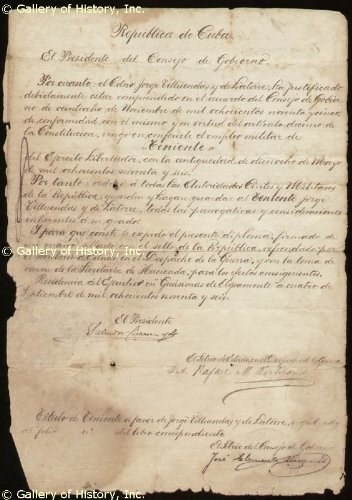 © Gallery of History, Inc.
© Gallery of History, Inc.
República de Cuba.
El Presidente del Consejo de Gobierno.
Por cuanto: el Cdno Jorge Villuendas y de Latorre, ha justificado
debidamente estar comprendido en el acuerdo del Consejo de Gobier
no de veintiocho de Noviembre de mil ochocientos noventa y cinco;
de conformidad con el mismo y en virtud del artículo decimo de
la Constitucion, vengo en conferirle el empleo militar de
"Teniente"
del Ejercito Libertador, con la antiguedad de dieciocho de Mayo
de mil ochocientos noventa y seis.
Por tanto: ordeno a todas las Autoridades Civiles y Militares
de la República, guarden y hagan guardar al Teniente Jorge
Villuendas y de Latorre, todas las prerogativas y consideraciones
inherentes a su grado.
I para que conste le expido el presente diploma, firmado de
el sello de la República, refrendado por
de Estado en el Despacho de la Guerra, y con la toma de
razon de la Secretaría de Hacienda, para los efectos consiguientes.
Residencia del Ejecutivo en Guaimaro de Camaguey a cuatro de
Septiembre de mil ochocientos noventa y seis.
El Presidente
Salvador Cisneros
El Sctrio de Estado en el Despacho de la Guerra
Rafael M. Portuondo
Titulo de Teniente a favor de Jorge Villuendas y de Latorre,
al folio del libro correspondiente
El Sctrio del Consejo de Gobierno
José Clemente
© Gallery of History, Inc.
© Gallery of History, Inc.